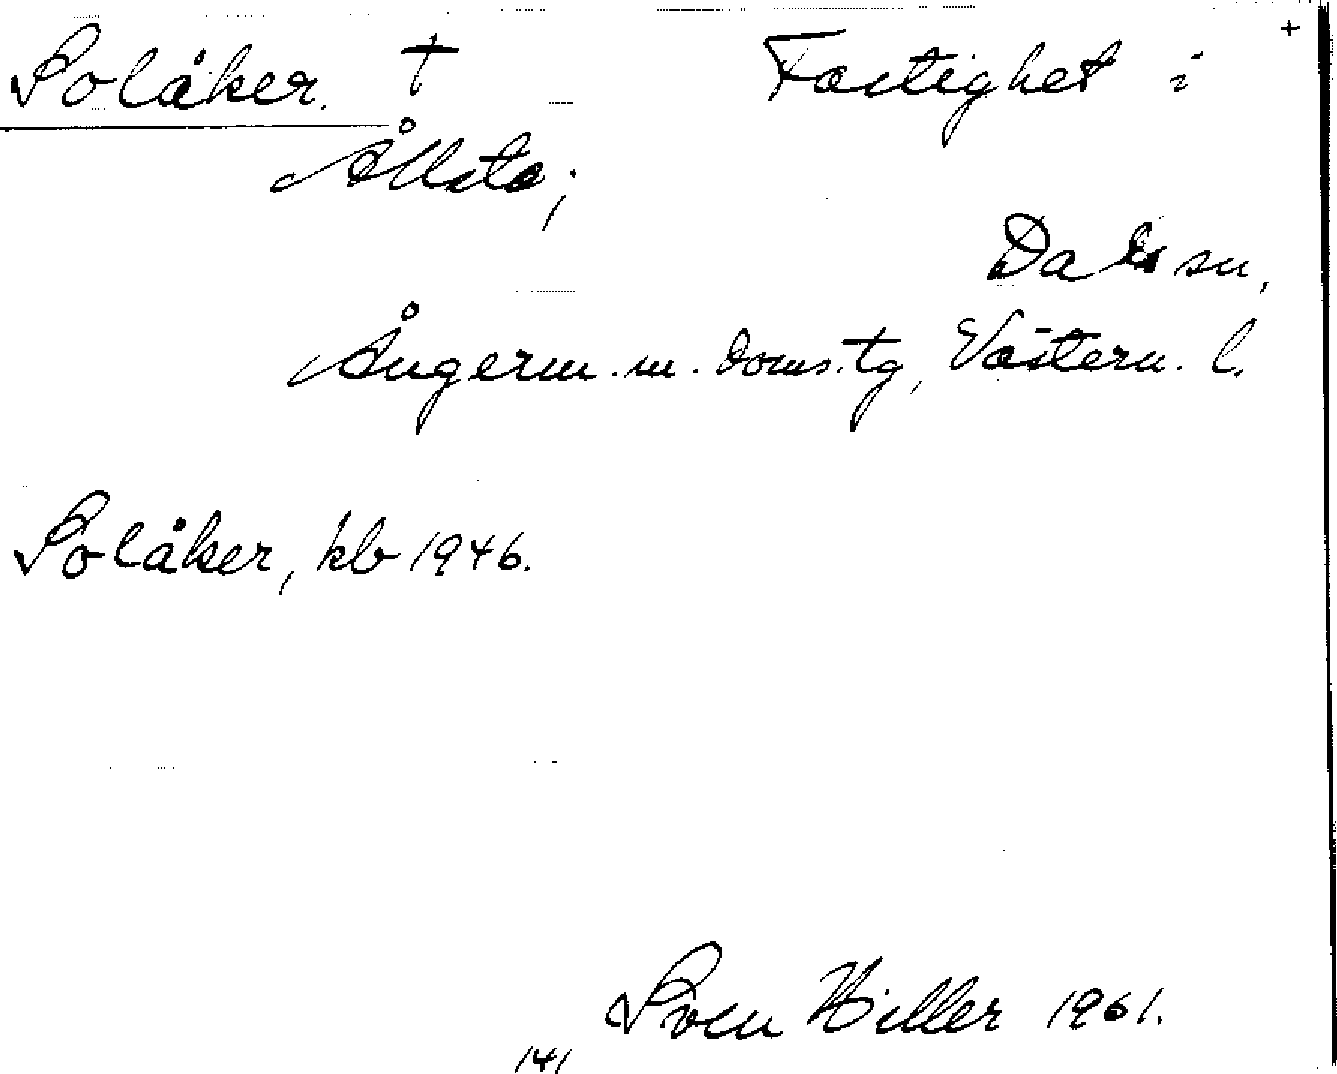 Solåker. † Fastighet i +
Ållsta;
Dals sn,
Ångerm. m. doms.tg, Västern. l.
Solåker, kb 1946.
Sven Hiller 1961.
141